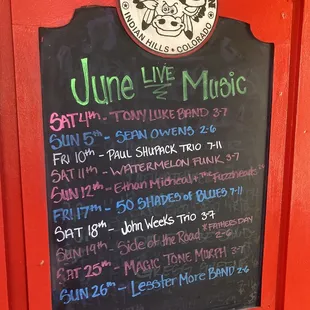 INDIAN HILLS • COLORADO
June LIVE Music
SAT 4th - TONY LUKE BAND 3-7
SUN 5th - SEAN OWENS 2-6
FRI 10th - PAUL SHUPACK TRIO 7-11
SAT 11th - WATERMELON FUNK 3-7
SUN 12th - Ethan Micheal + The Fuzzheads
FRI 17th - 50 SHADES of BLUES 7-11
SAT 18th - John Weeks Trio 3-7
* FATHERS DAY
SUN 19th - Side of the Road 2-6
SAT 25th - MAGIC TONE MURPH 3-7
SUN 26th - Lesster More BAND 2-6